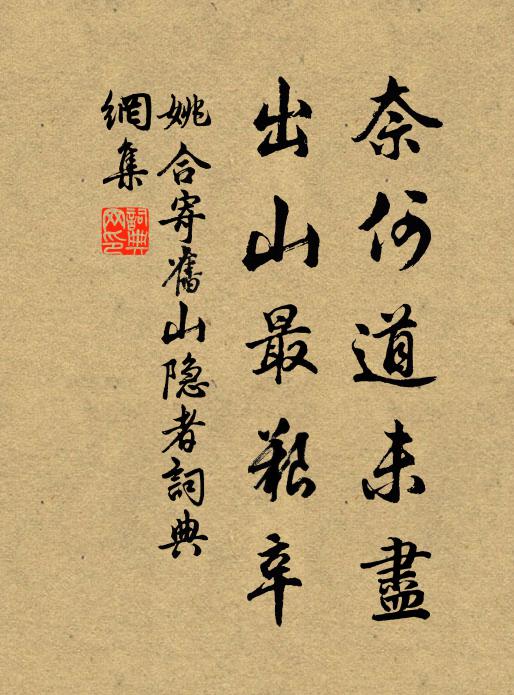 奈何道未盡
出山最艱辛
姚合寄舊山隐者詞典
網集
詞典
网印